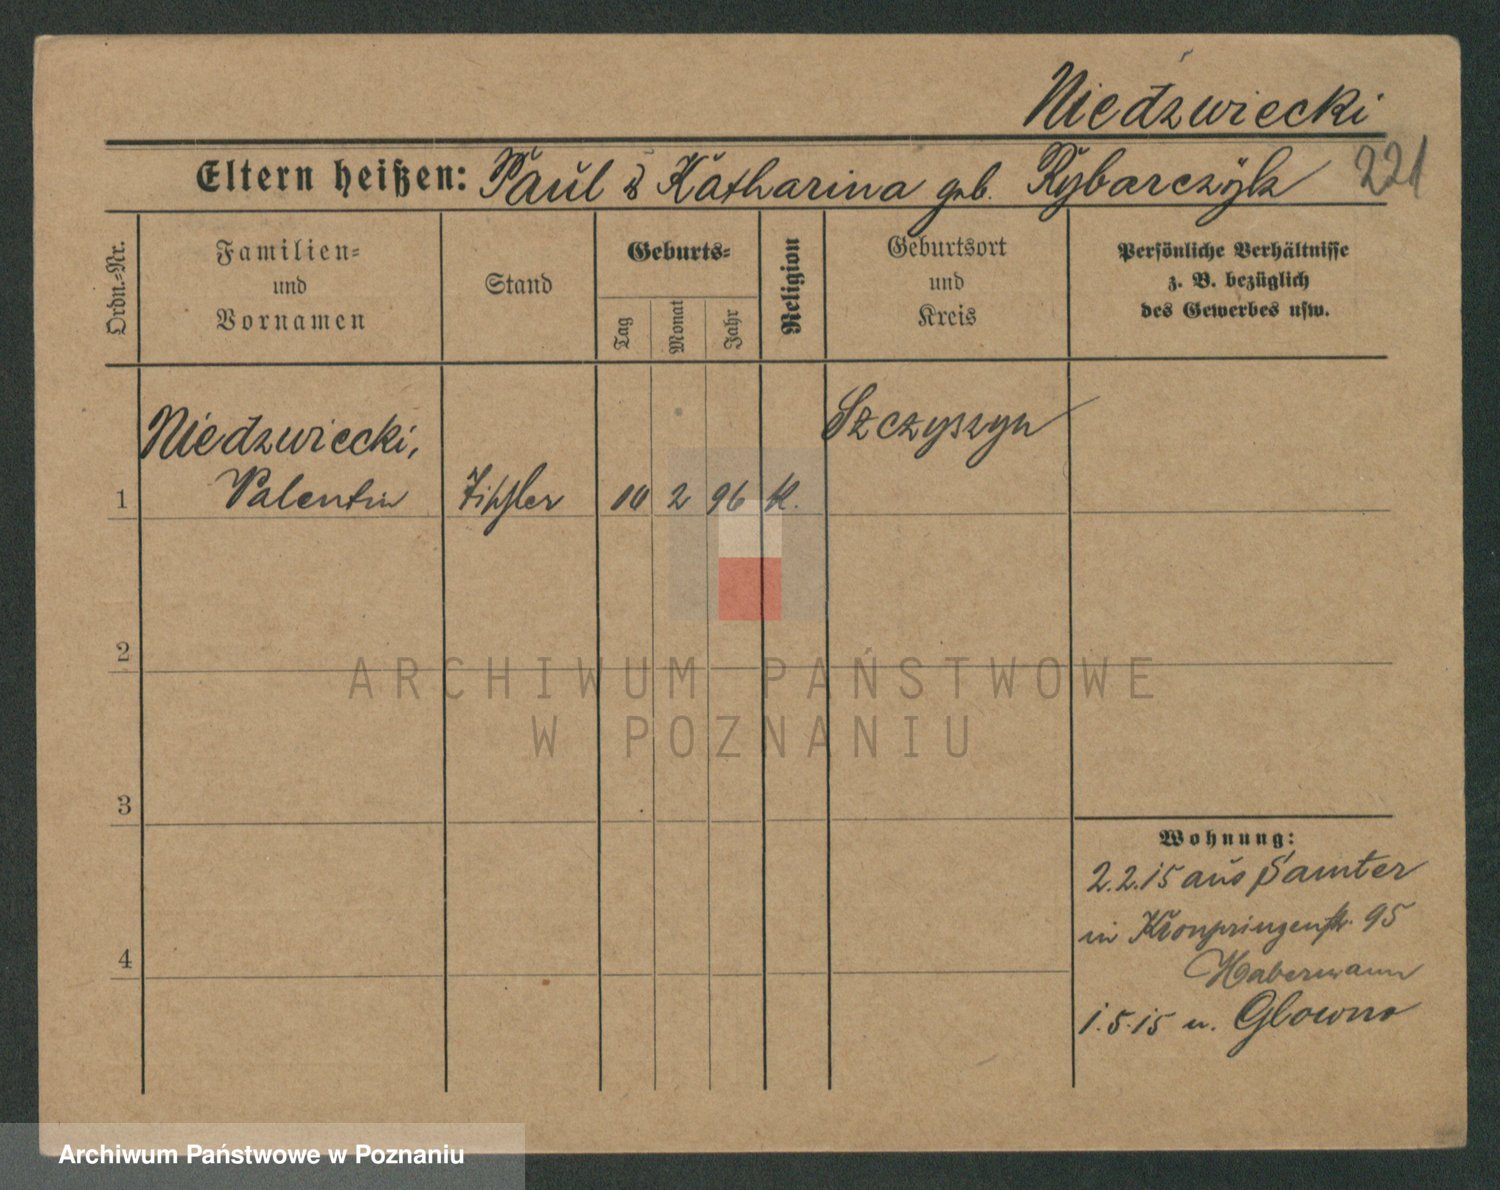 Niedźwiecki
Eltern heißen: Paul & Katharina geb. Rybarczyk 221
Ordn.-Nr.
Familien-
und
Vornamen
Stand
Geburts-
Tag
Monat
Jahr
Religion
Geburtsort
und
Kreis
Persönliche Verhältnisse
z. B. bezüglich
des Gewerbes usw.
Niedzwiecki, Szczyszyn
1 Valentin Tischler 10 2 96 K.
2
3
4
Wohnung:
2.2.15 aus Samter
in Kronprinzenstr. 95
Habermann
1.5.15 n. Glowno
ARCHIWUM PAŃSTWOWE
W POZNANIU
Archiwum Państwowe w Poznaniu